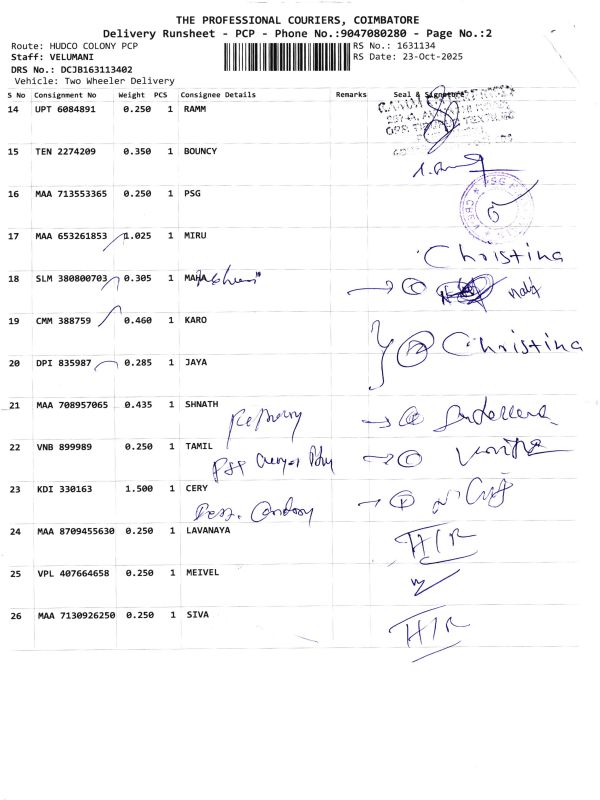 THE PROFESSIONAL COURIERS, COIMBATORE
Delivery Runsheet - PCP - Phone No.:9047080280 - Page No.:2
Route: HUDCO COLONY PCP RS No.: 1631134
Staff: VELUMANI RS Date: 23-Oct-2025
DRS No.: DCJB163113402
Vehicle: Two Wheeler Delivery
S No Consignment No Weight PCS Consignee Details Remarks Seal & Signature
14 UPT 6084891 0.250 1 RAMM
15 TEN 2274209 0.350 1 BOUNCY
16 MAA 713553365 0.250 1 PSG
17 MAA 653261853 1.025 1 MIRU
Christina
18 SLM 380800703 0.305 1 MAHA
19 CMM 388759 0.460 1 KARO
Christina
20 DPI 835987 0.285 1 JAYA
21 MAA 708957065 0.435 1 SHNATH
22 VNB 899989 0.250 1 TAMIL
23 KDI 330163 1.500 1 CERY
24 MAA 8709455630 0.250 1 LAVANAYA
25 VPL 407664658 0.250 1 MEIVEL
26 MAA 7130926250 0.250 1 SIVA